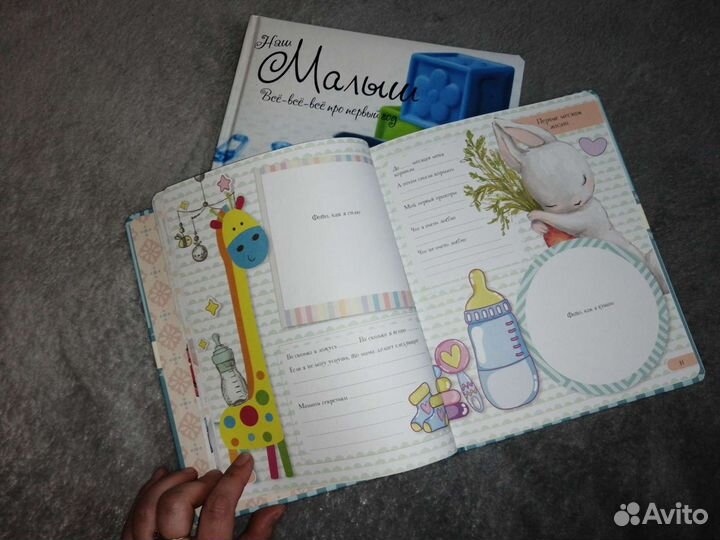 Наш
Малыш
Всё-всё-всё про первый год
Фото, как я сплю
Во сколько я ложусь
Во сколько я встаю
Если я не могу уснуть, то мама делает следующее
Мамины секретики
Первые месяцы
жизни
До
месяцев меня
кормили
А потом стали кормить
Мой первый прикорм
Что я очень люблю
Что не очень люблю
Фото, как я кушаю
11
Avito